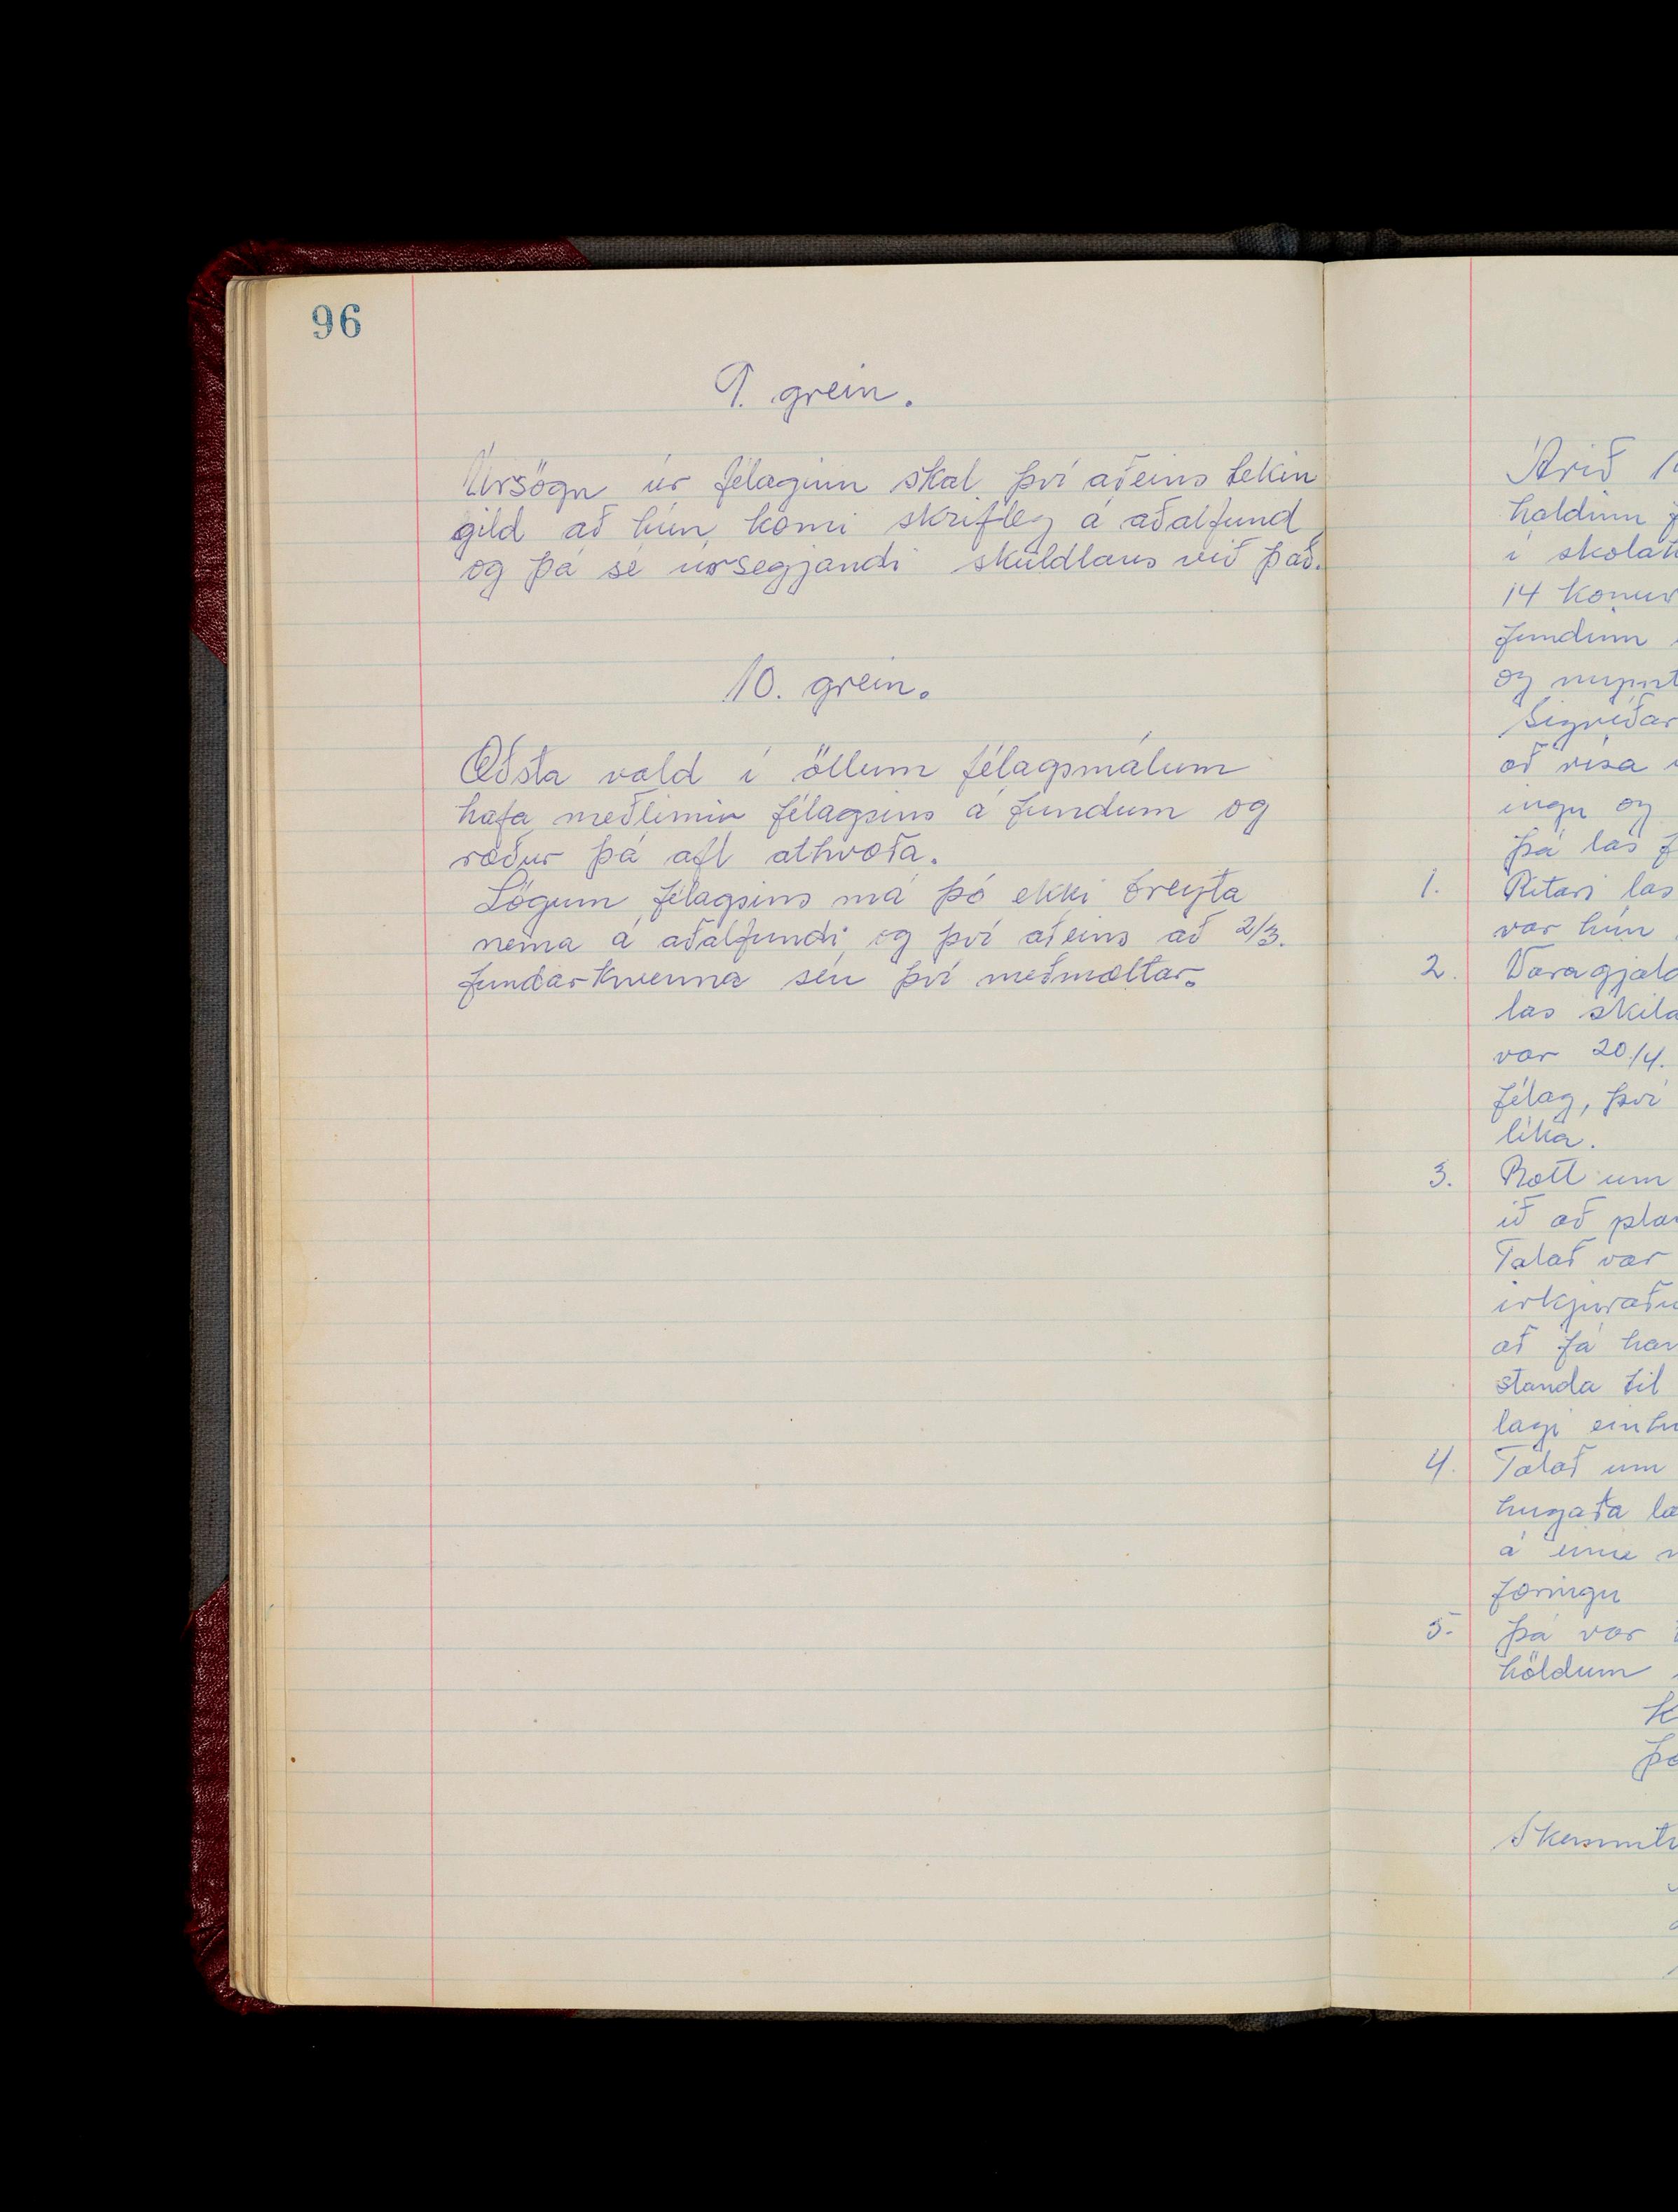 96
9. grein.
Úrsögn úr félaginu skal því aðeins tekin
gild að hún komi skrifleg á aðalfund
og þá sé úrsegjandi skuldlaus við það.
10. grein.
Æðsta vald í öllum félagsmálum
hafa meðlimir félagsins á fundum og
ræður þá afl atkvæða.
Lögum félagsins má þó ekki breyta
nema á aðalfundi og því aðeins að 2/3.
fundarkvenna séu því meðmæltar.
Árið 1
haldinn f
í skóla
14 konur
fundinn
og
Sigríðar
að vísa
ingu og
Þá las f
1. Ritari las
var hún
2. Varagjald
las skila
var 20/4.
félag, því
líka.
3. Rætt um
ið að pla
Talað var
að fá han
standa til
lagi einh
4. Talað um
hugaða la
á einu
færingu
5. Þá var
höldum
K
Þó
Skemmti